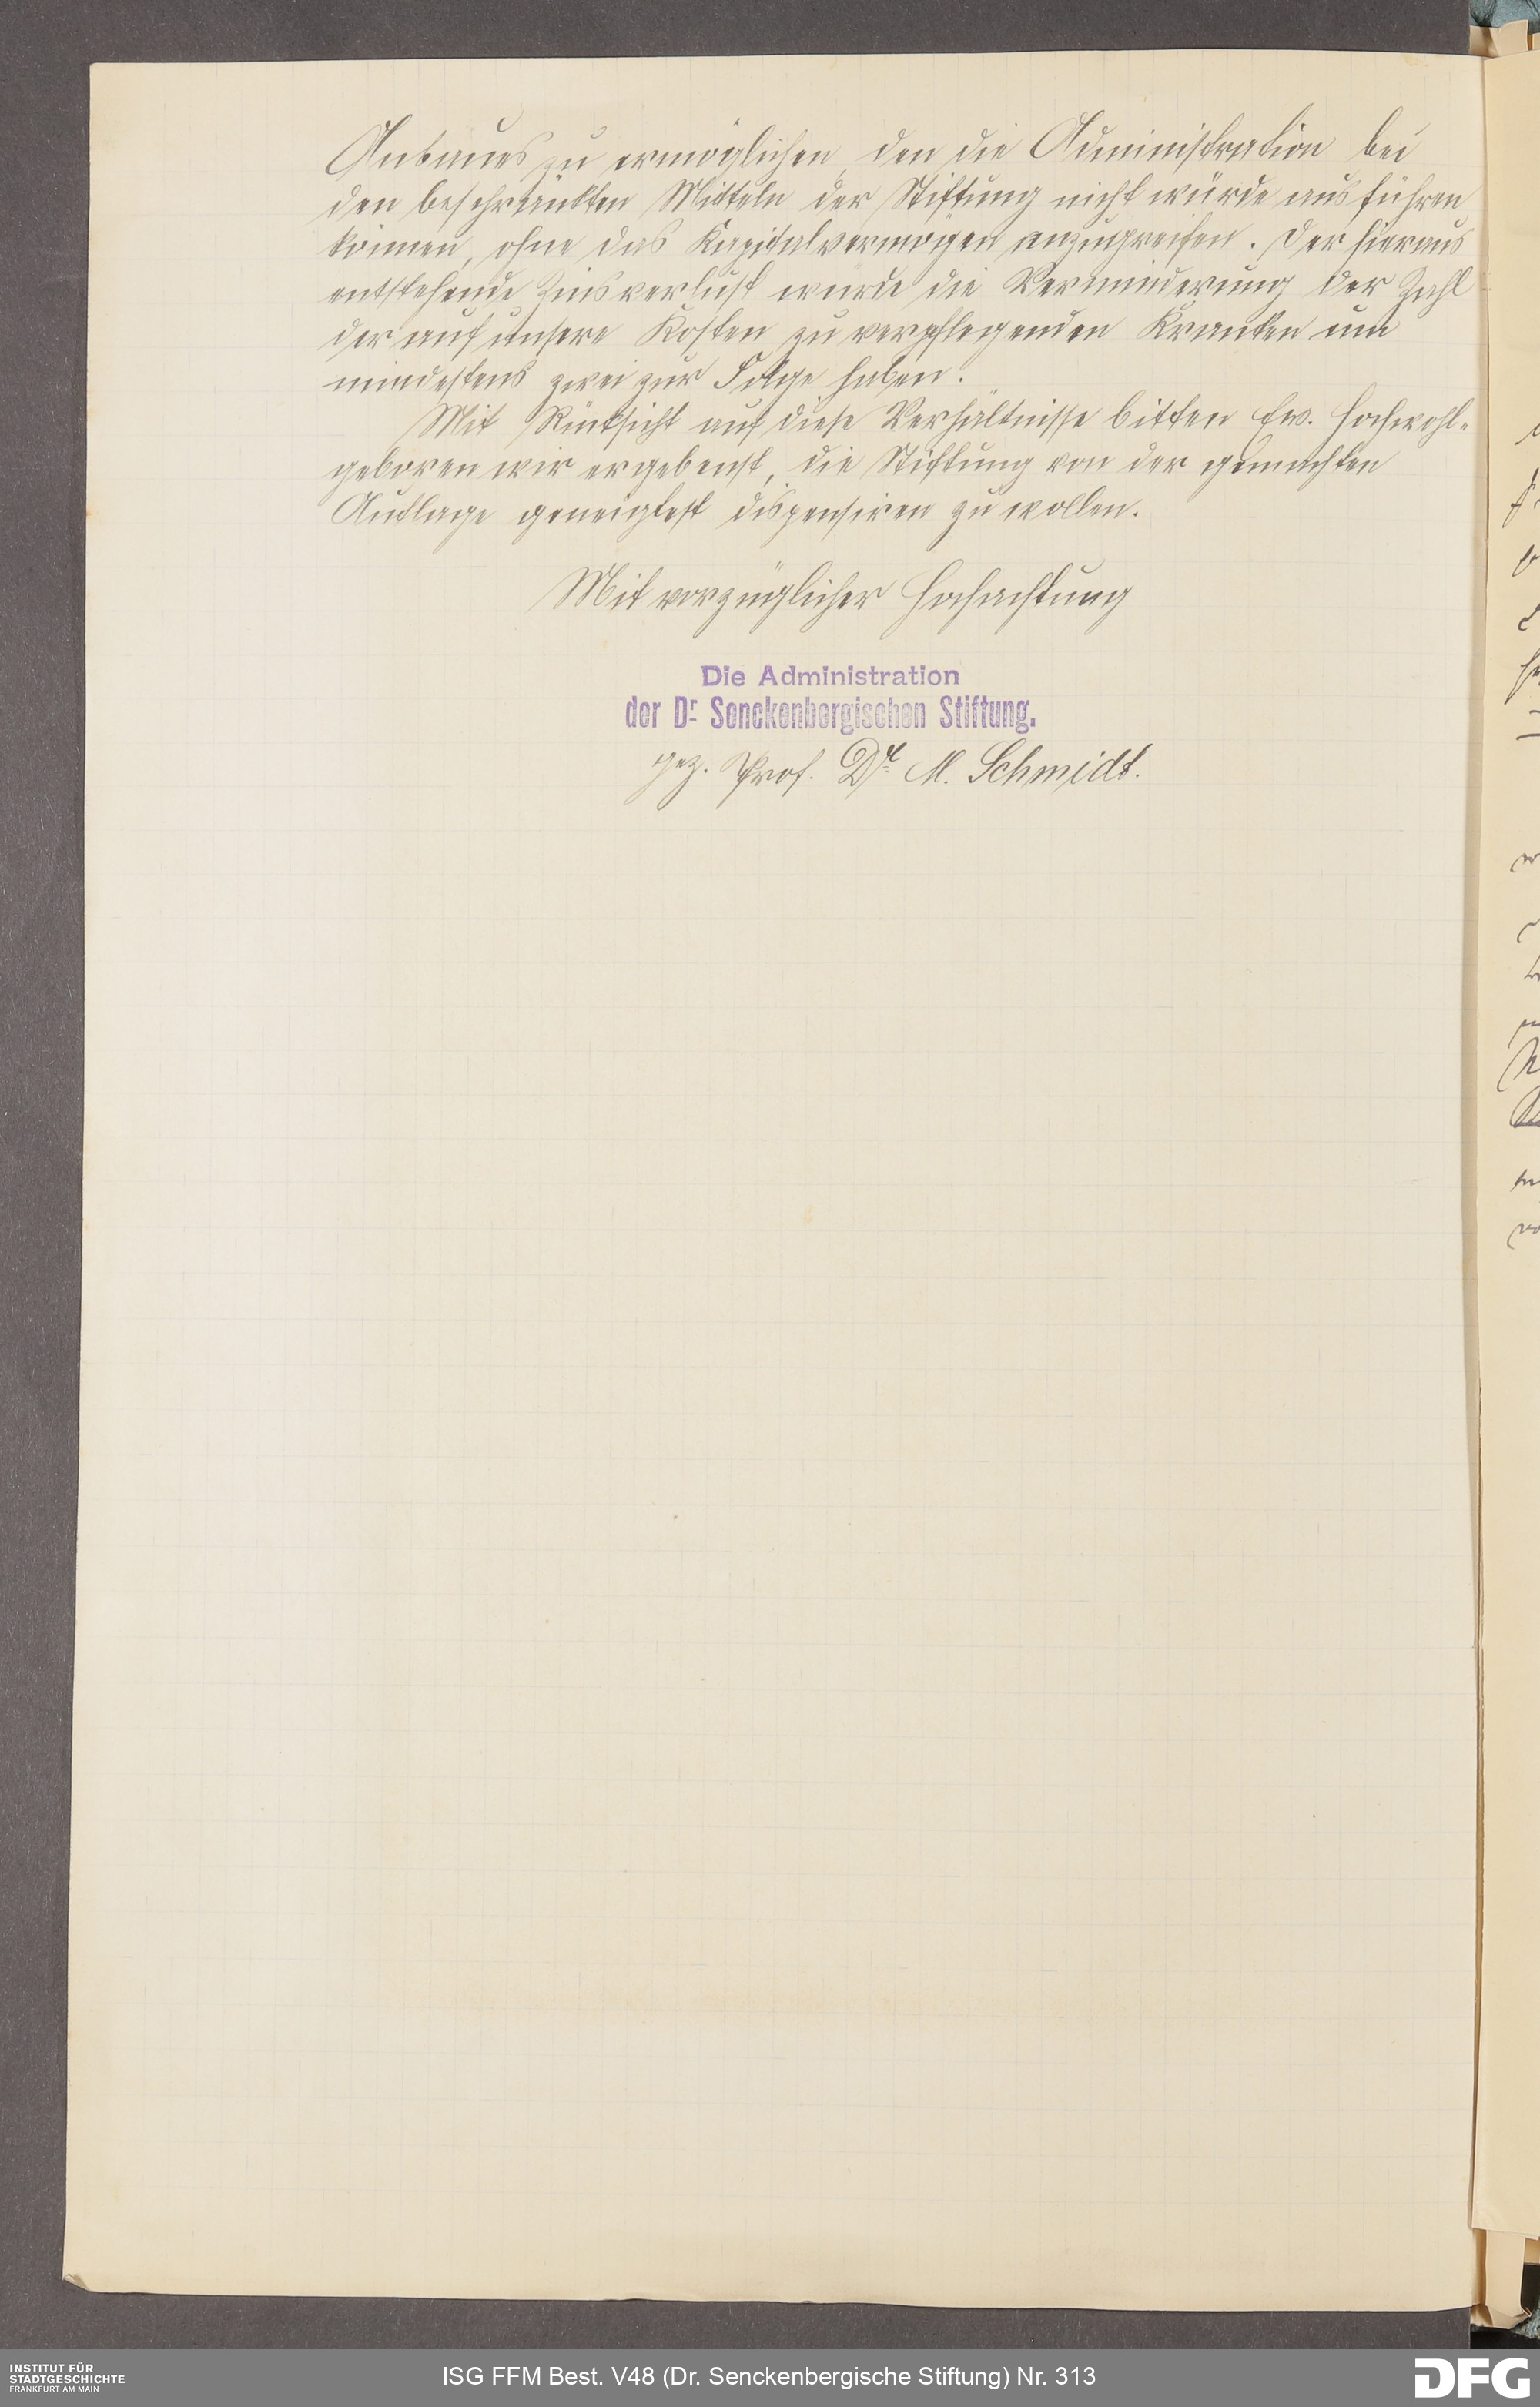 Anbaues zu ermöglichen, den die Administration bei
den beschränkten Mitteln der Stiftung nicht würde ausführen
können, ohne das Kapitalvermögen anzugreifen. Der hieraus
entstehende Zinsverlust würde die Verminderung der Zahl
der auf unsere Kosten zu verpflegenden Kranken um
mindestens zwei zur Folge haben.
Mit Rücksicht auf diese Verhältnisse bitten Ew. Hochwohl-
geboren wir ergebenst, die Stiftung von der gemachten
Auflage geneigtest dispensiren zu wollen.
Mit vorzüglicher Hochachtung
Die Administration
der Dr. Senckenbergischen Stiftung.
gez. Prof. Dr. M. Schmidt.
INSTITUT FÜR
STADTGESCHICHTE
FRANKFURT AM MAIN
ISG FFM Best. V48 (Dr. Senckenbergische Stiftung) Nr. 313
DFG